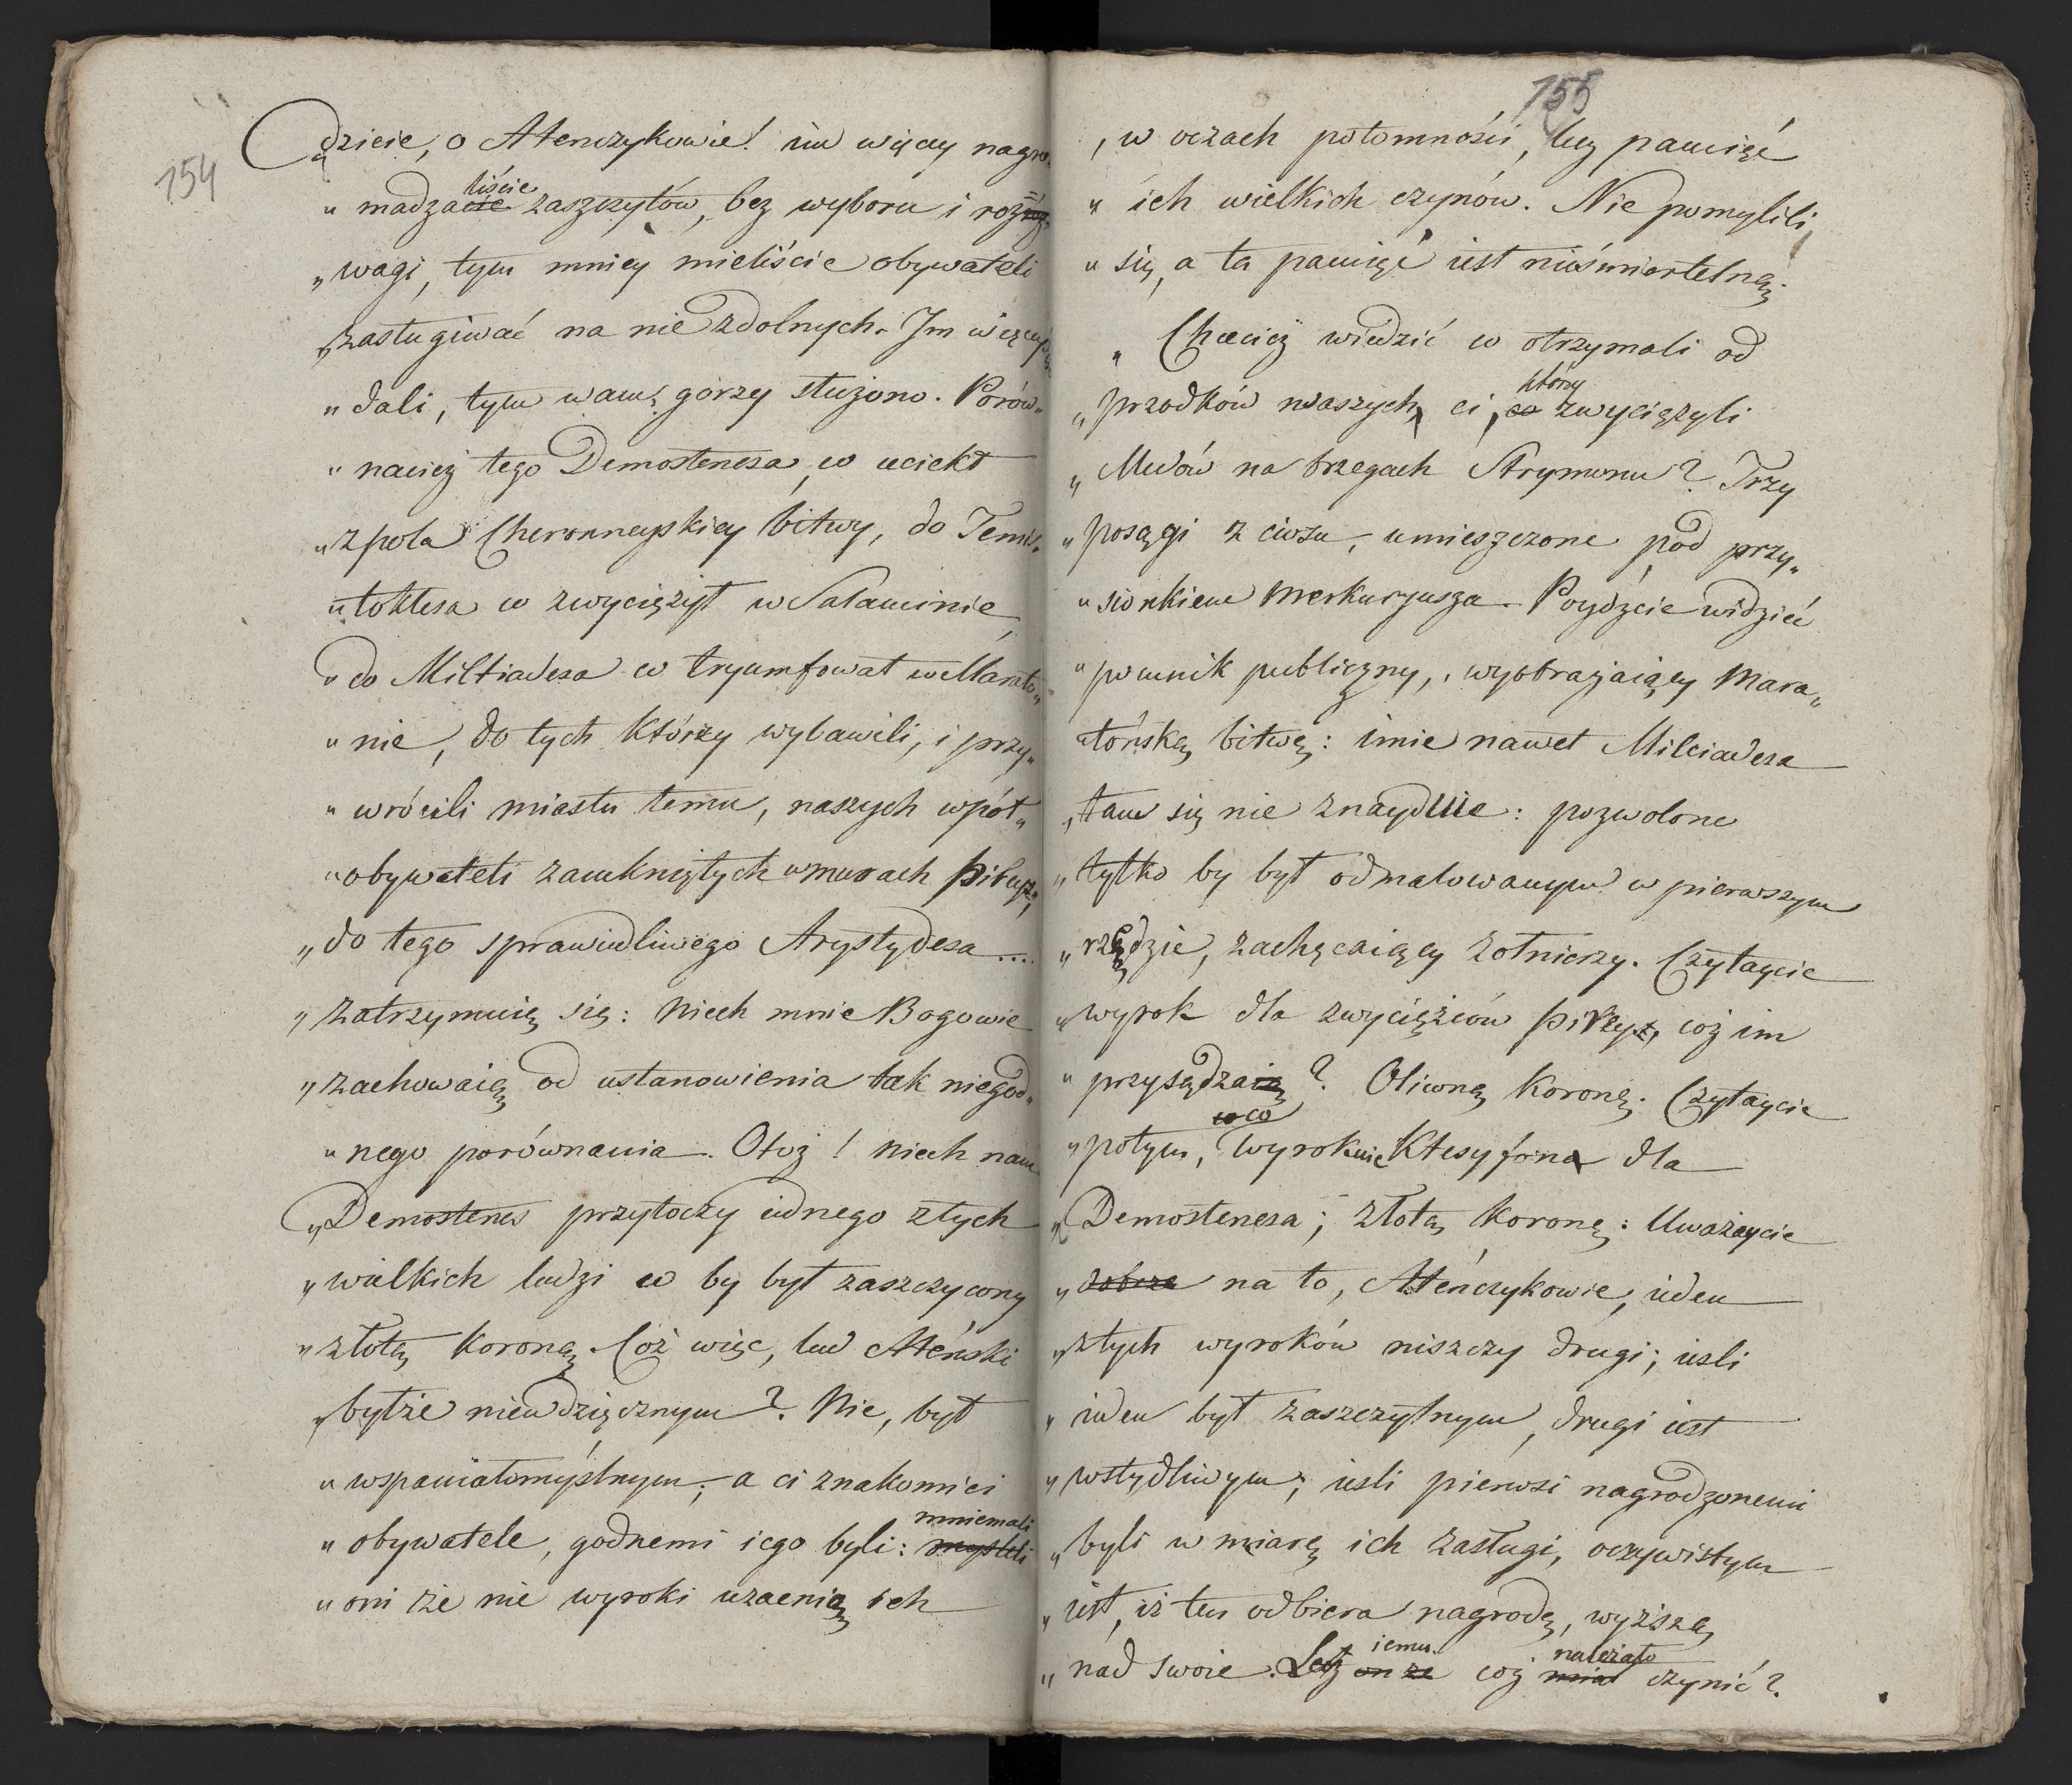 154
„dzicie, o Atenczykowie! im więcy nagro„
„madzaliście zaszczytów, bez wyboru i roz„
„wagi, tym mniey mieliście obywateli
„zasługiwać na nie zdolnych. Im więcey
„dali, tym wam gorzey służono. Porów„
„nacież tego Demostenesa, co uciekł
„z pola Cheronneyskiey bitwy, do Temis„
„toklesa co zwyciężył w Salaminie,
„do Miltiadesa co tryumfował w Marato„
„nie, do tych którzy wybawili, i przy„
„wrócili miastu temu, naszych wpół„
„obywateli zamkniętych w murach
„do tego sprawiedliwego Arystydesa....
„zatrzymuię się: niech mnie Bogowie
„zachowaią od ustanowienia tak niegod„
„nego porównania. Otoż! niech nam
„Demostenes przytoczy iednego z tych
„wielkich ludzi co by był zaszczycony
„złotą koroną. Coż więc, lud Atéński
„byłże niewdzięcznym? Nie, był
„wspaniałomyślnym; a ci znakomici
„obywatele, godnemi iego byli: mniemali
„oni że nie wyroki uzacnią ich
155
„w oczach potomności, lecz pamięć
„ich wielkich czynów. Nie pomylili
„się, a ta pamięć iest nieśmiertelną.
„Chcecież wiedzieć co otrzymali od
„przodków naszych, ci, którzy zwyciężyli
„Medów na brzegach Strymonu? Trzy
„posągi z ciosu, umieszczone pod przy„
„sionkiem Merkuryusza. Poydźcie widzieć
„pomnik publiczny, wyobrażaiący Mara„
„tońską bitwę: imie nawet Milciadesa
„tam się nie znayduie: pozwolono
„tylko by był odmalowanym w pierwszym
„rzędzie, zachęcaiący żołnierzy. Czytaycie
„wyrok dla zwycięzców coż im
„przysądza? Oliwną koronę. Czytaycie
„potym, co wyrokuie Ktesyfon dla
„Demostenesa; złotą koronę: Uważaycie
„dobrze na to, Ateńczykowie, ieden
„z tych wyroków niszczy drugi; iesli
„ieden był zaszczytnym, drugi iest
„wstydliwym; iesli pierwsi nagrodzonemi
„byli w miarę ich zasługi, oczywistym
„iest, iż ten odbiera nagrodę, wyższą
„nad swoie. Lecz iemu coż należało czynić?